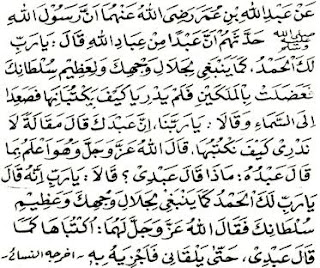 عَنْ عَبْدِ اللهِ بْنِ عُمَرَ رَضِيَ اللهُ عَنْهُمَا اَنَّ رَسُوْلَ اللهِ
ﷺ حَدَّثَهُمْ اَنَّ عَبْدًا مِنْ عِبَادِ اللهِ قَالَ : يَارَبِّ
لَكَ الْحَمْدُ، كَمَا يَنْبَغِى لِجَلَالِ وَجْهِكَ وَلِعَظِيْمِ سُلْطَانِكَ
فَعَضَلَتْ بِالْمَلَكَيْنِ فَلَمْ يَدْرِيَا كَيْفَ يَكْتُبَانِهَا فَصَعِدَا
اِلَى السَّمَاءِ وَقَالَا : يَارَبَّنَا، اِنَّ عَبْدَكَ قَالَ مَقَالَةً لَا
نَدْرِى كَيْفَ نَكْتُبُهَا. قَالَ اللهُ عَزَّ وَجَلَّ وَهُوَ اَعْلَمُ بِمَا
قَالَ عَبْدُهُ : مَاذَا قَالَ عَبْدِى ؟ قَالَا : يَارَبِّ اِنَّهُ قَالَ
يَارَبِّ لَكَ الْحَمْدُ كَمَا يَنْبَغِى لِجَلَالِ وَجْهِكَ وَعَظِيْمِ
سُلْطَانِكَ فَقَالَ اللهُ عَزَّ وَجَلَّ لَهُمَا : اُكْتُبَاهَا كَمَا
قَالَ عَبْدِى، حَتَّى يَلْقَانِى فَاَجْزِيَهُ بِهَا - اخرجه النسائى -